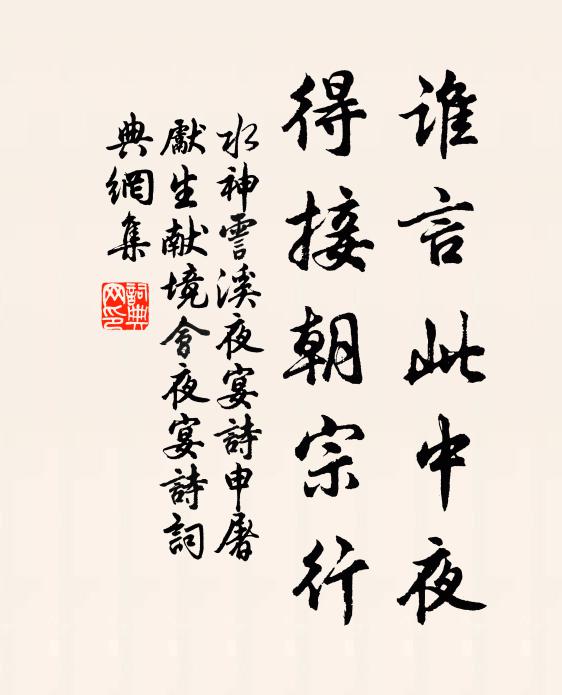 谁言此中夜
得接朝宗行
水神雪溪夜宴詩申屠
獻生献境會夜宴詩詞
典網集
詞典
网印